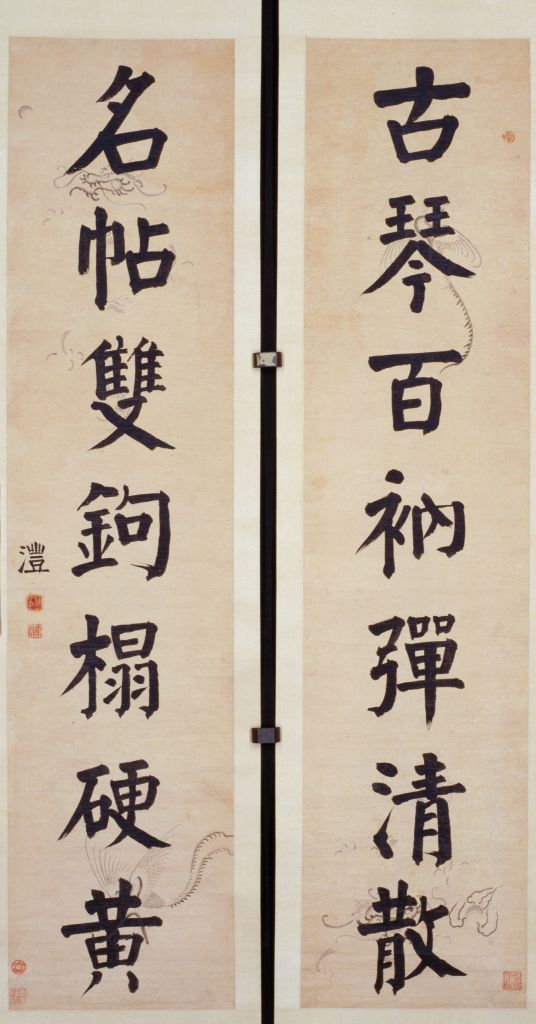 古琴百衲彈清散
名帖雙鉤榻硬黃
灃